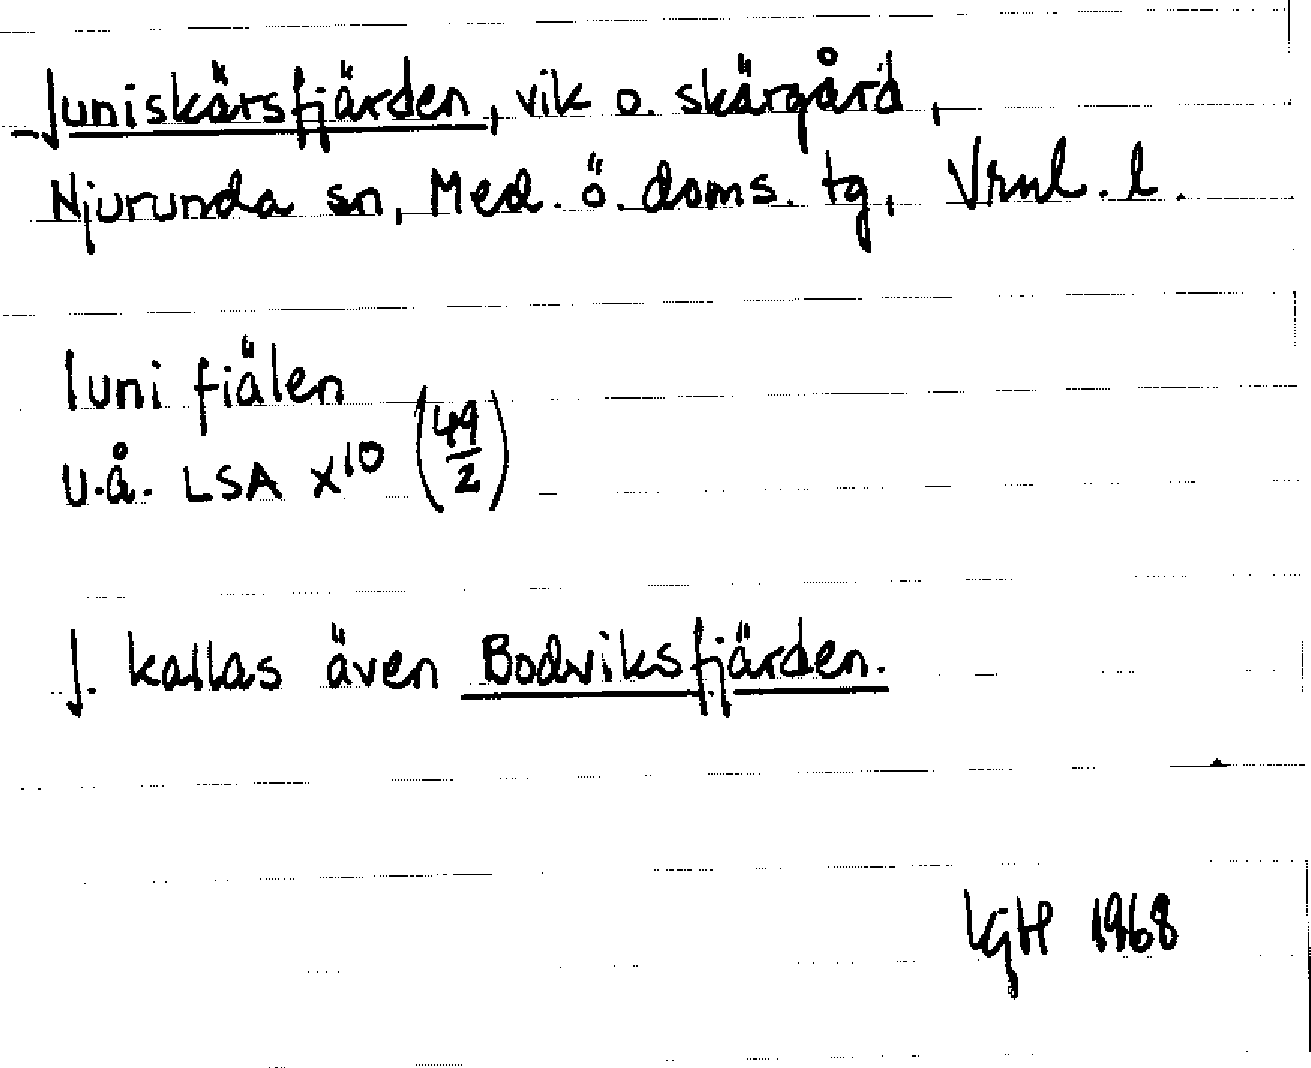 Juniskärsfjärden, vik o. skärgård,
Njurunda sn, Med. ö. doms. tg, Vrnl. l.
Iuni fiälen
U.å. LSA X10 (49/2)
J. kallas även Bodviksfjärden.
LGH 1968